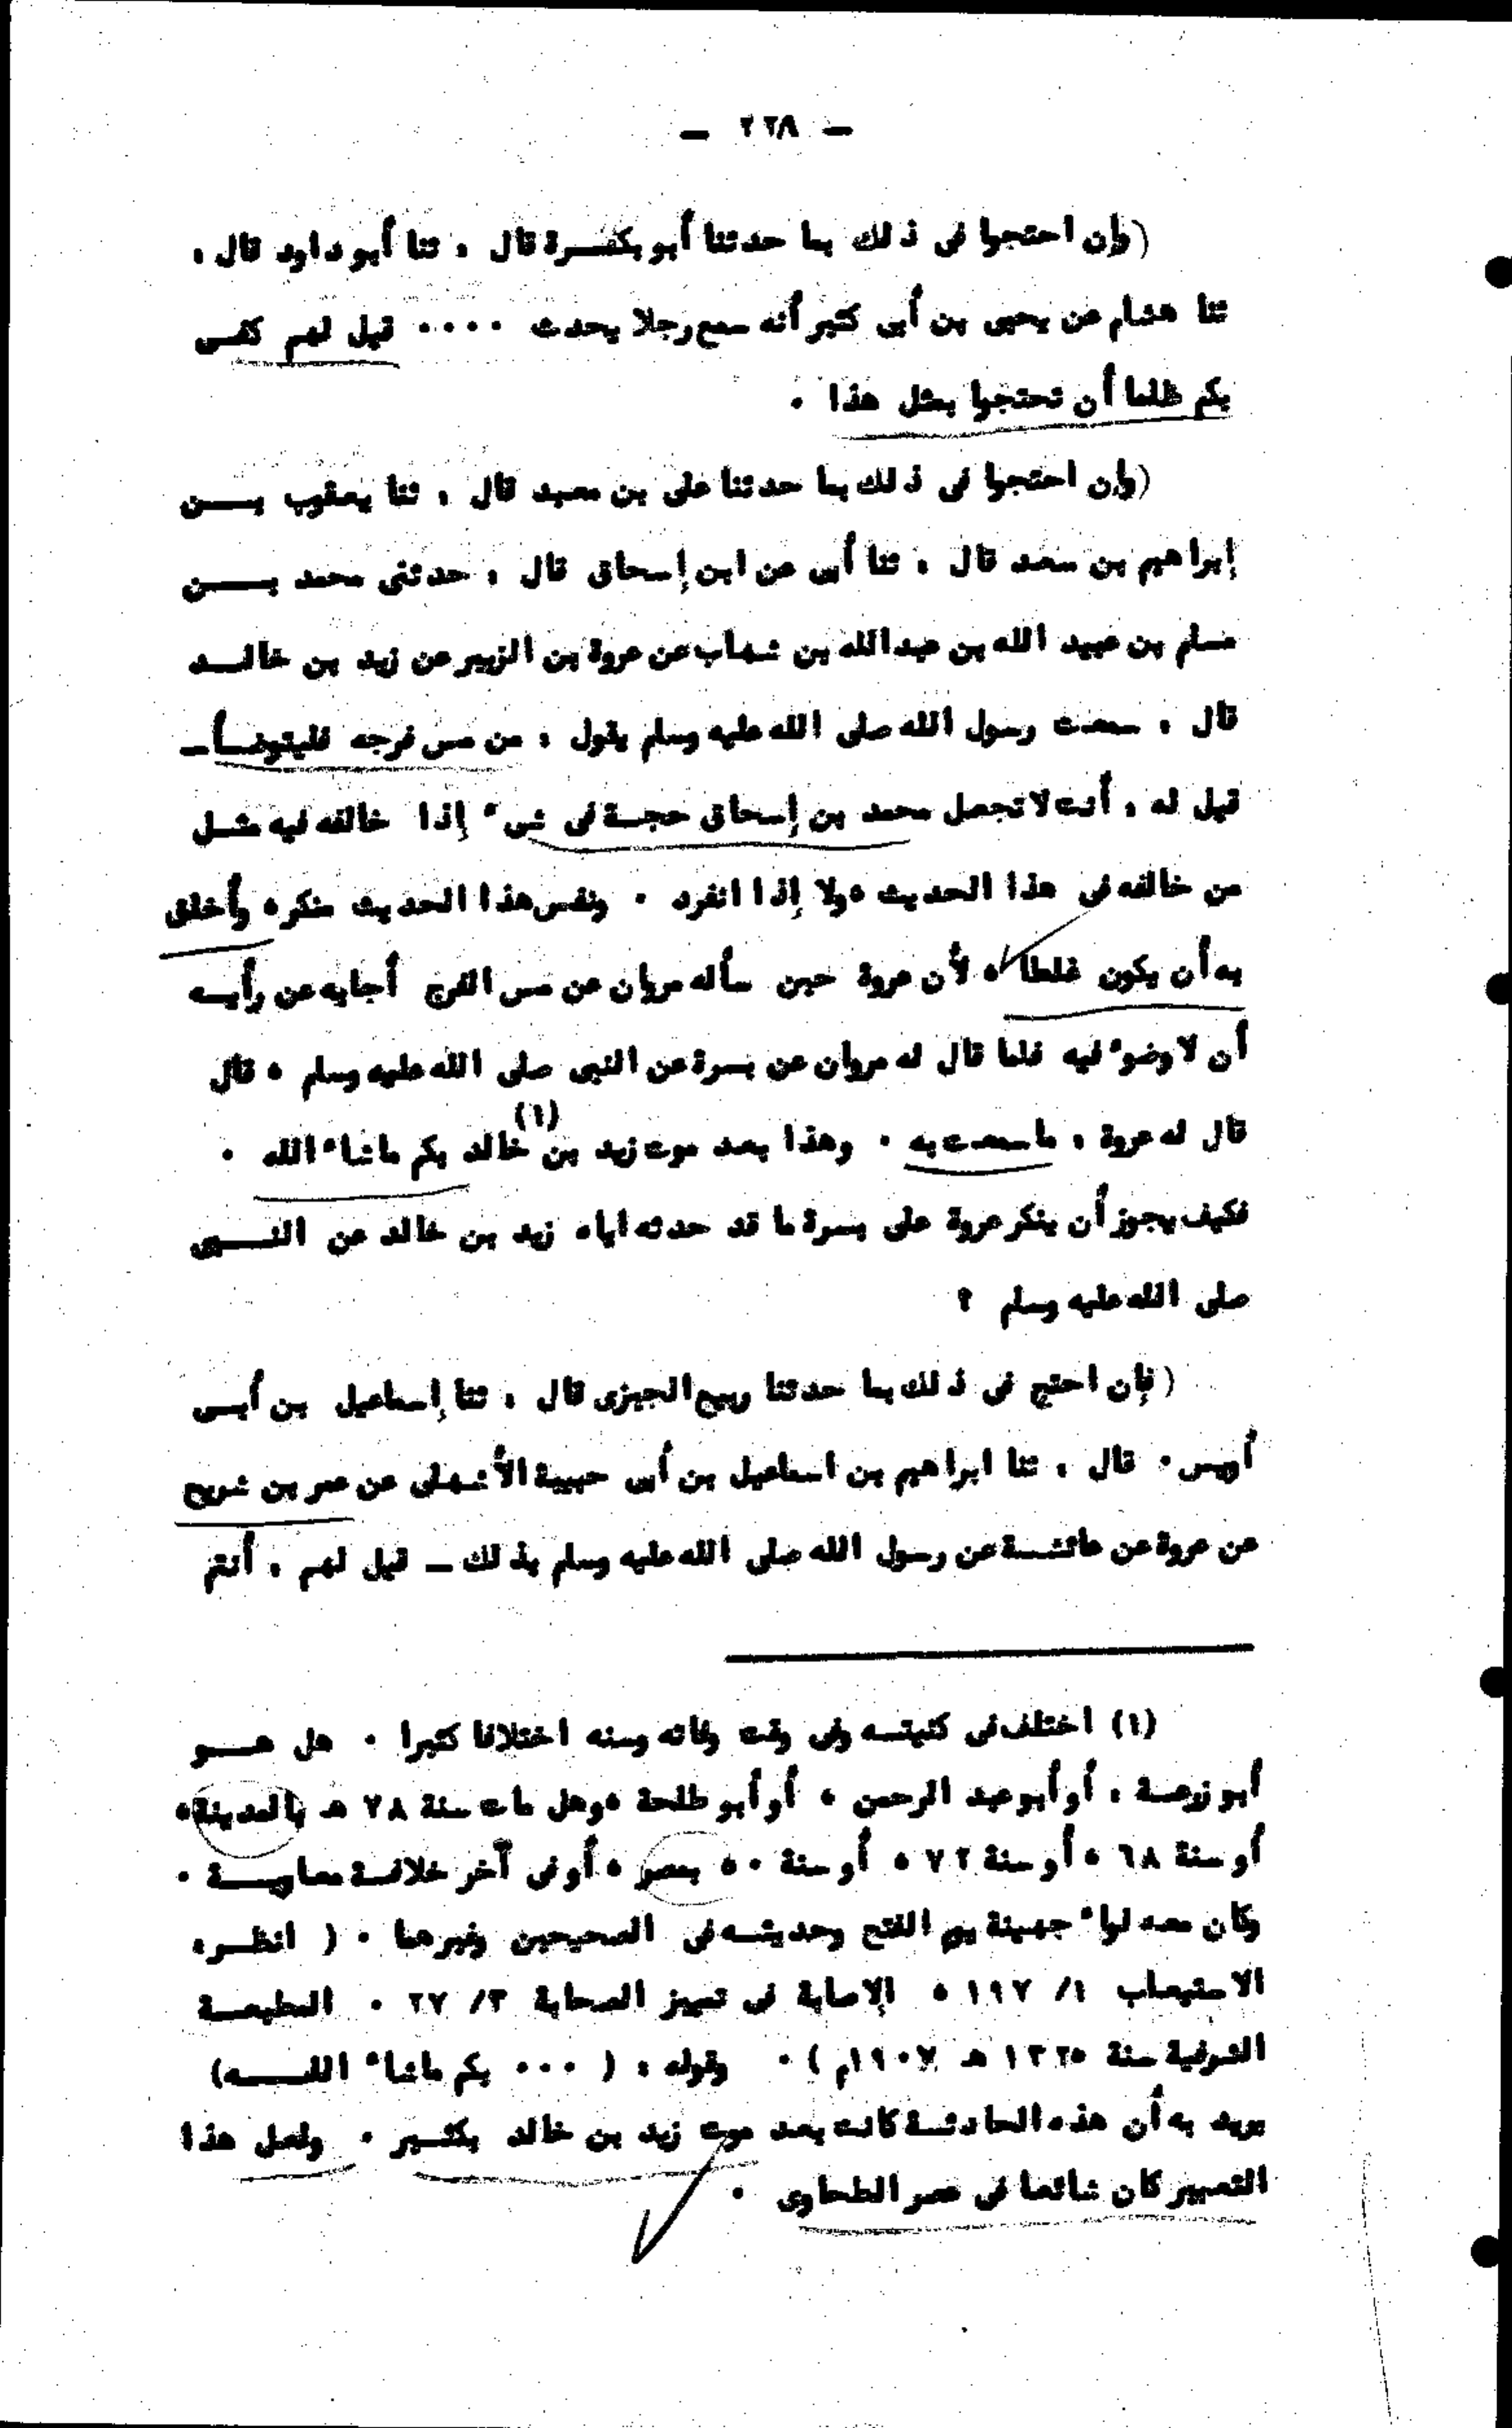 — ٢٢٨ —
(وإن احتجوا فى ذلك بما حدثنا أبو بكـــرة قال ، ثنا أبو داود قال ،
ثنا هشام عن يحيى بن أبى كثير أنه سمع رجلا يحدث ٠٠٠٠ قيل لهم كفـى
بكم ظلما أن تحتجوا بمثل هذا ٠
(وإن احتجوا فى ذلك بما حدثنا على بن معبد قال ، ثنا يعقوب بـــن
إبراهيم بن سعد قال ، ثنا أبى عن ابن إسحاق قال ، حدثنى محمد بـــن
مسلم بن عبيد الله بن عبدالله بن شهاب عن عروة بن الزبير عن زيد بن خالــد
قال ، سمعت رسول الله صلى الله عليه وسلم يقول ، من مس فرجه فليتوضــأ ــ
قيل له ، أنت لا تجعل محمد بن إسحاق حجــة فى شىء إذا خالفه فيه مثــل
من خالفه فى هذا الحديث ، ولا إذا انفرد ٠ ونفس هذا الحديث منكر ، وأخلق
به أن يكون غلطا ، لأن عروة حين سأله مروان عن مس الفرج أجابه عن رأيــه
أن لا وضوء فيه فلما قال له مروان عن بسرة عن النبى صلى الله عليه وسلم ، قال
قال له عروة ، ما سمعت به ٠ وهذا بعد موت زيد بن خالد (١) بكم ما شاء الله ٠
فكيف يجوز أن ينكر عروة على بسرة ما قد حدثه اياه زيد بن خالد عن النـــبى
صلى الله عليه وسلم ؟
(فإن احتج فى ذلك بما حدثنا ربيع الجيزى قال ، ثنا إسماعيل بن أبــى
أويس ٠ قال ، ثنا ابراهيم بن اسماعيل بن أبى حبيبة الأشهلى عن عمر بن شريح
عن عروة عن عائشــة عن رسول الله صلى الله عليه وسلم بذلك ــ قيل لهم ، أنتم
(١) اختلف فى كنيتــه وفى وقت وفاته وسنه اختلافا كثيرا ٠ هل هـــو
أبو زرعــة ، أو أبو عبد الرحمن ، أو أبو طلحة ، وهل مات سنة ٧٨ هـ بالمدينة ،
أو سنة ٦٨ ، أو سنة ٧٢ ، أو سنة ٥٠ بمصر ، أو فى آخر خلافــة معاويـــة ٠
وكان معه لواء جهينة يوم الفتح وحديثــه فى الصحيحين وغيرهما ٠ ( انظــر ،
الاستيعاب ١/ ١٩٧ ، الإصابة فى تمييز الصحابة ٣/ ٢٧ ٠ المطبعــة
الشرفية سنة ١٣٢٥ هـ ١٩٠٧م ) ٠ وقوله : ( ٠٠٠ بكم ماشاء اللـــه)
يريد به أن هذه الحادثــة كانت بعد موت زيد بن خالد بكثــير ٠ ولعل هذا
التعبير كان شائعا فى عصر الطحاوى ٠